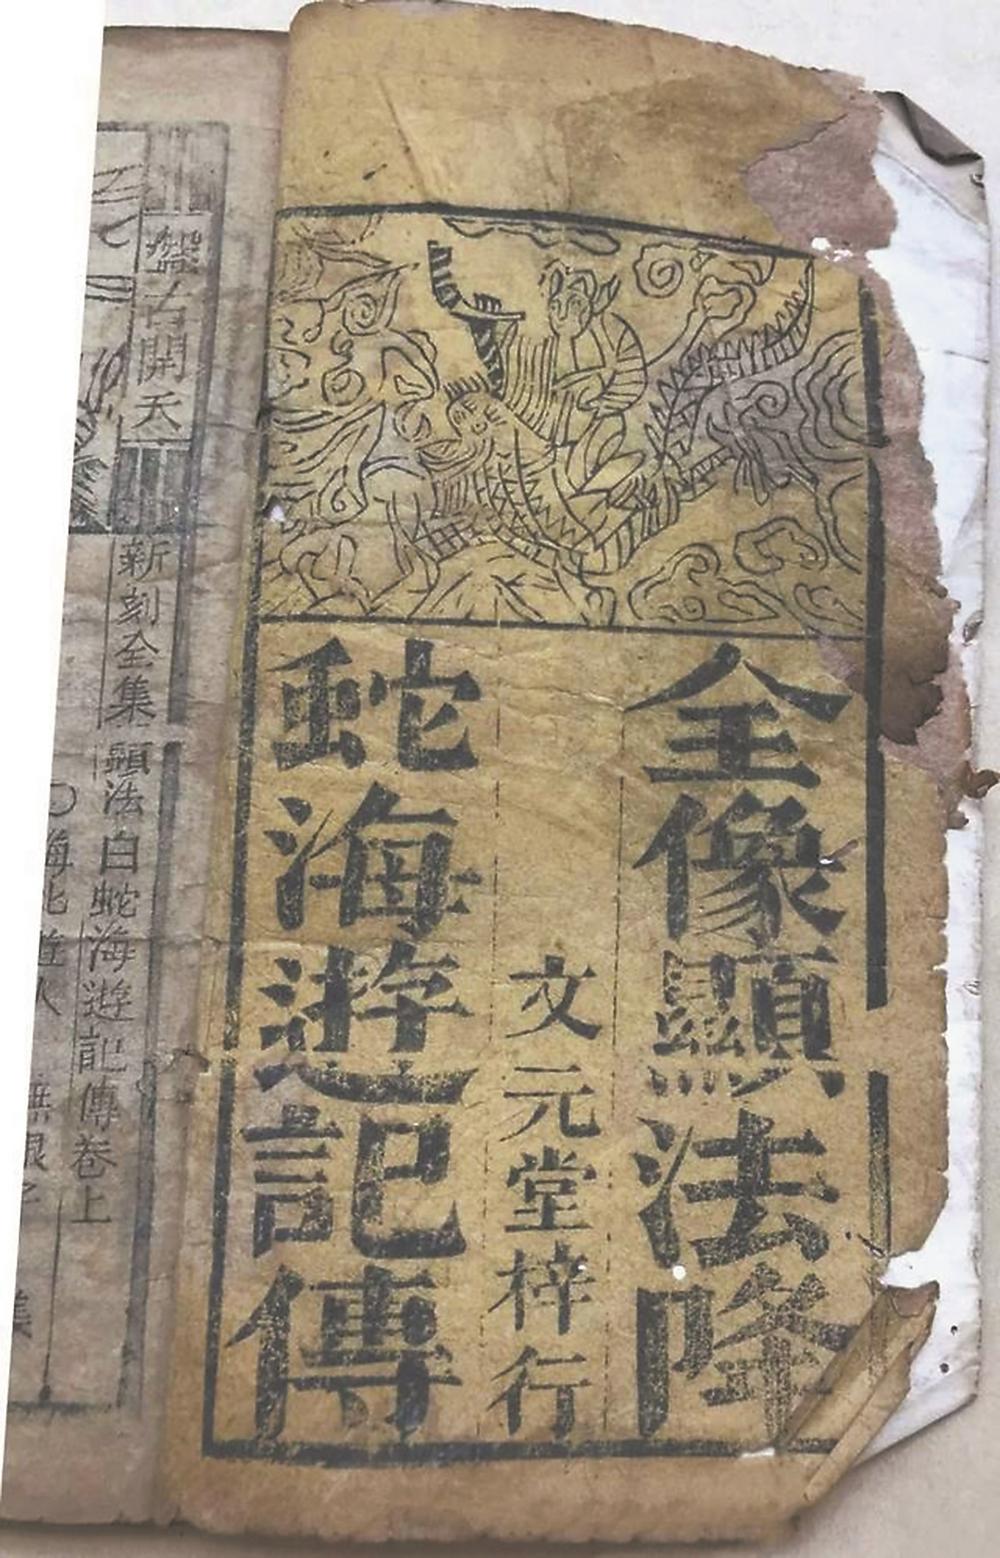 全像顯法降
文元堂梓行
蛇海遊記傳
盤古開天
新刻全集顯法白蛇海遊記傳卷上
海北遊人 無根子 集